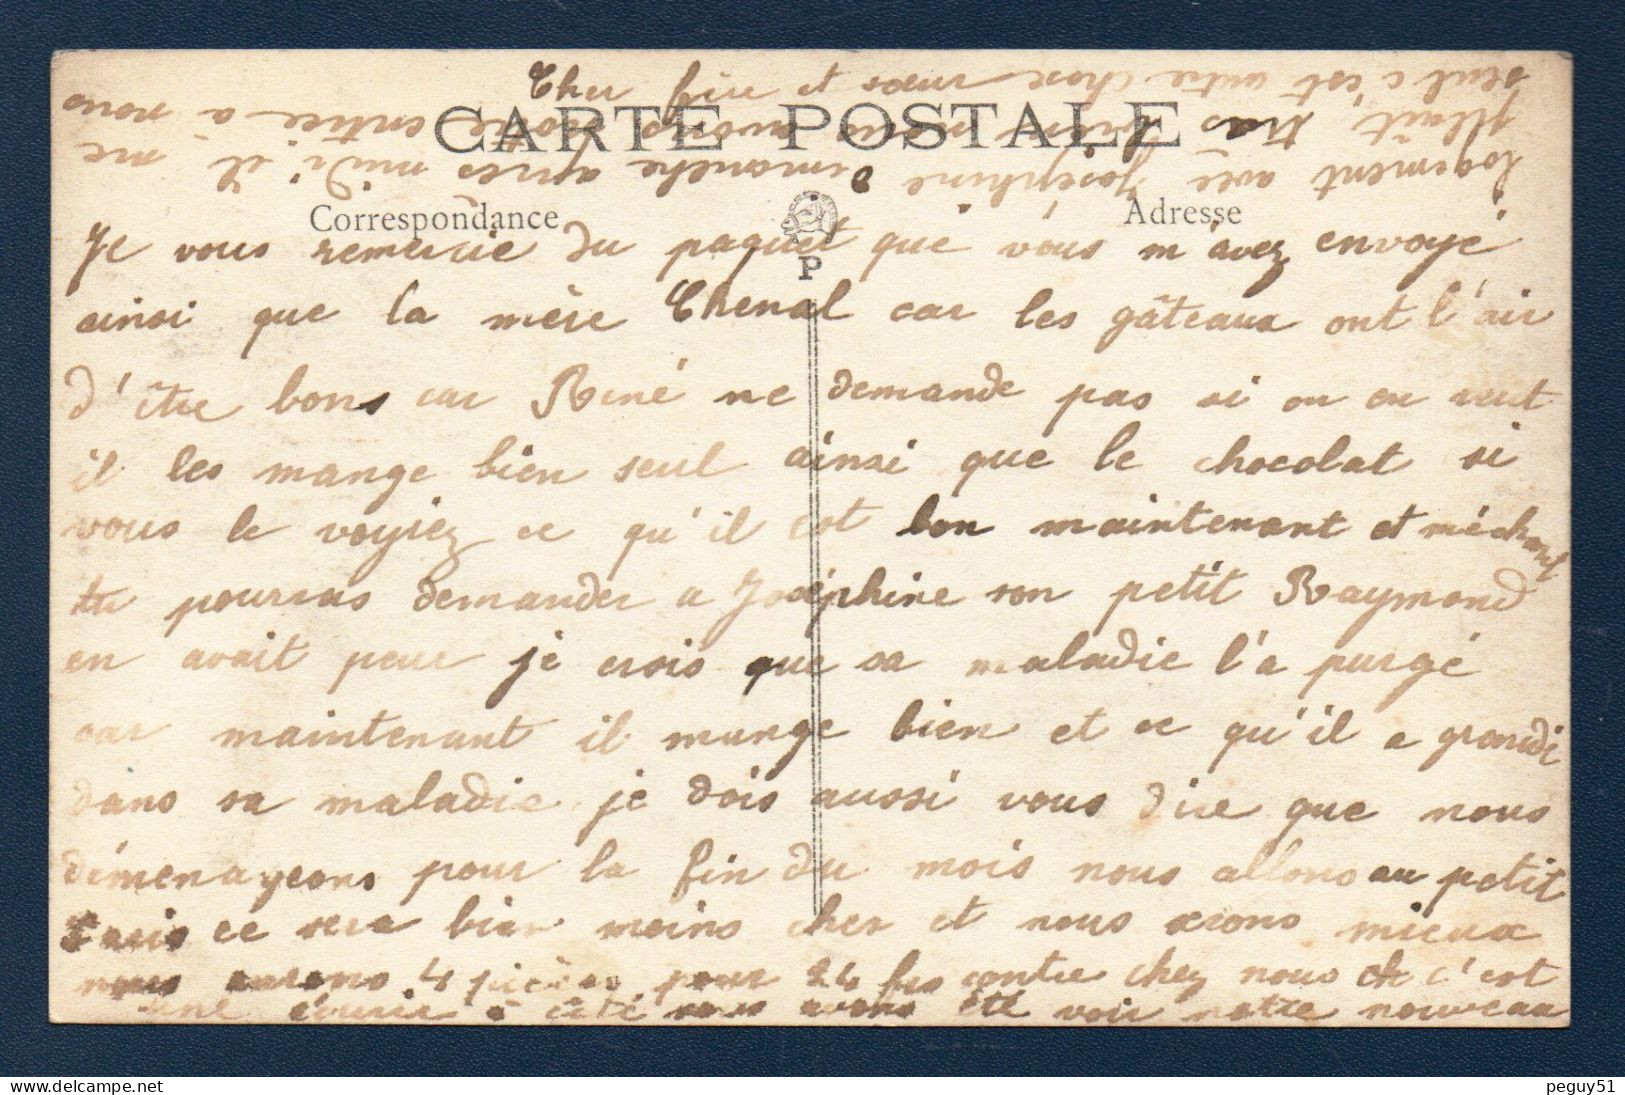 CARTE POSTALE
Correspondance
Adresse
P
Cher frère et sœur
Je vous remercie du paquet que vous m'avez envoyé
ainsi que la mère Chenal car les gâteaux ont l'air
d'être bons car René ne demande pas si on en veut
il les mange bien seul ainsi que le chocolat si
vous le voyiez ce qu'il est bon maintenant et méchant
tu pourras demander a Joséphine son petit Raymond
en avait peur je crois que sa maladie l'a purgé
car maintenant il mange bien et ce qu'il a grandi
dans sa maladie je dois aussi vous dire que nous
déménageons pour la fin du mois nous allons au petit
Paris ce sera bien moins cher et nous serons mieux
nous aurons 4 pièces pour 24 frs contre chez nous et c'est
une écurie à côté nous avons été voir notre nouveau
logement avec Joséphine dimanche après midi il me
plaît très bien nous avons notre entrée à nous
seul c'est autre chose
peguy51